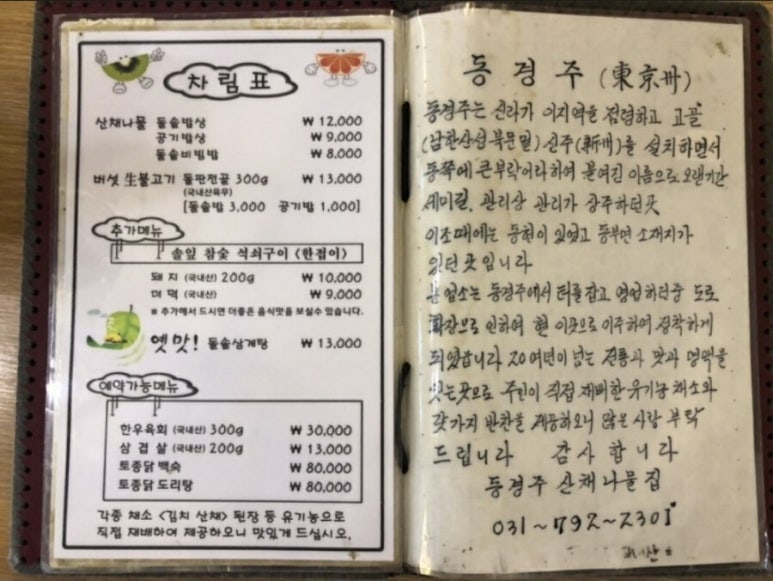 차림표
산채나물 돌솥밥상 ₩ 12,000
공기밥상 ₩ 9,000
돌솥비빔밥 ₩ 8,000
버섯 生불고기 돌판전골 300g ₩ 13,000
(국내산육우)
[돌솥밥 3,000 공기밥 1,000]
추가메뉴
솔잎 참숯 석쇠구이 (한접이)
돼지 (국내산) 200g ₩ 10,000
더덕 (국내산) ₩ 9,000
※ 추가해서 드시면 더좋은 음식맛을 보실수 있습니다.
옛맛! 돌솥삼계탕 ₩ 13,000
예약가능메뉴
한우육회 (국내산) 300g ₩ 30,000
삼겹살 (국내산) 200g ₩ 13,000
토종닭 백숙 ₩ 80,000
토종닭 도리탕 ₩ 80,000
각종 채소 <김치 산채> 된장 등 유기농으로
직접 재배하여 제공하오니 맛있게 드십시오.
동경주 (東京州)
동경주는 신라가 이지역을 점령하고 고골
(남한산성 북문 밑) 신주(新州)를 설치하면서
동쪽에 큰부락이라하여 붙여진 이름으로 오랜기간
세미길. 관리상 관리가 상주하던곳
이조때에는 동헌이 있었고 동부면 소재지가
있던 곳 입니다
본 업소는 동경주에서 터를 잡고 영업하던중 도로
확장으로 인하여 현 이곳으로 이주하여 정착하게
되었습니다 20여년이 넘는 전통과 맛과 명맥을
잇는곳으로 주인이 직접 재배한 유기농 채소와
갖가지 반찬을 제공하오니 많은 사랑 부탁
드립니다 감사 합니다
동경주 산채나물집
031~792~2301